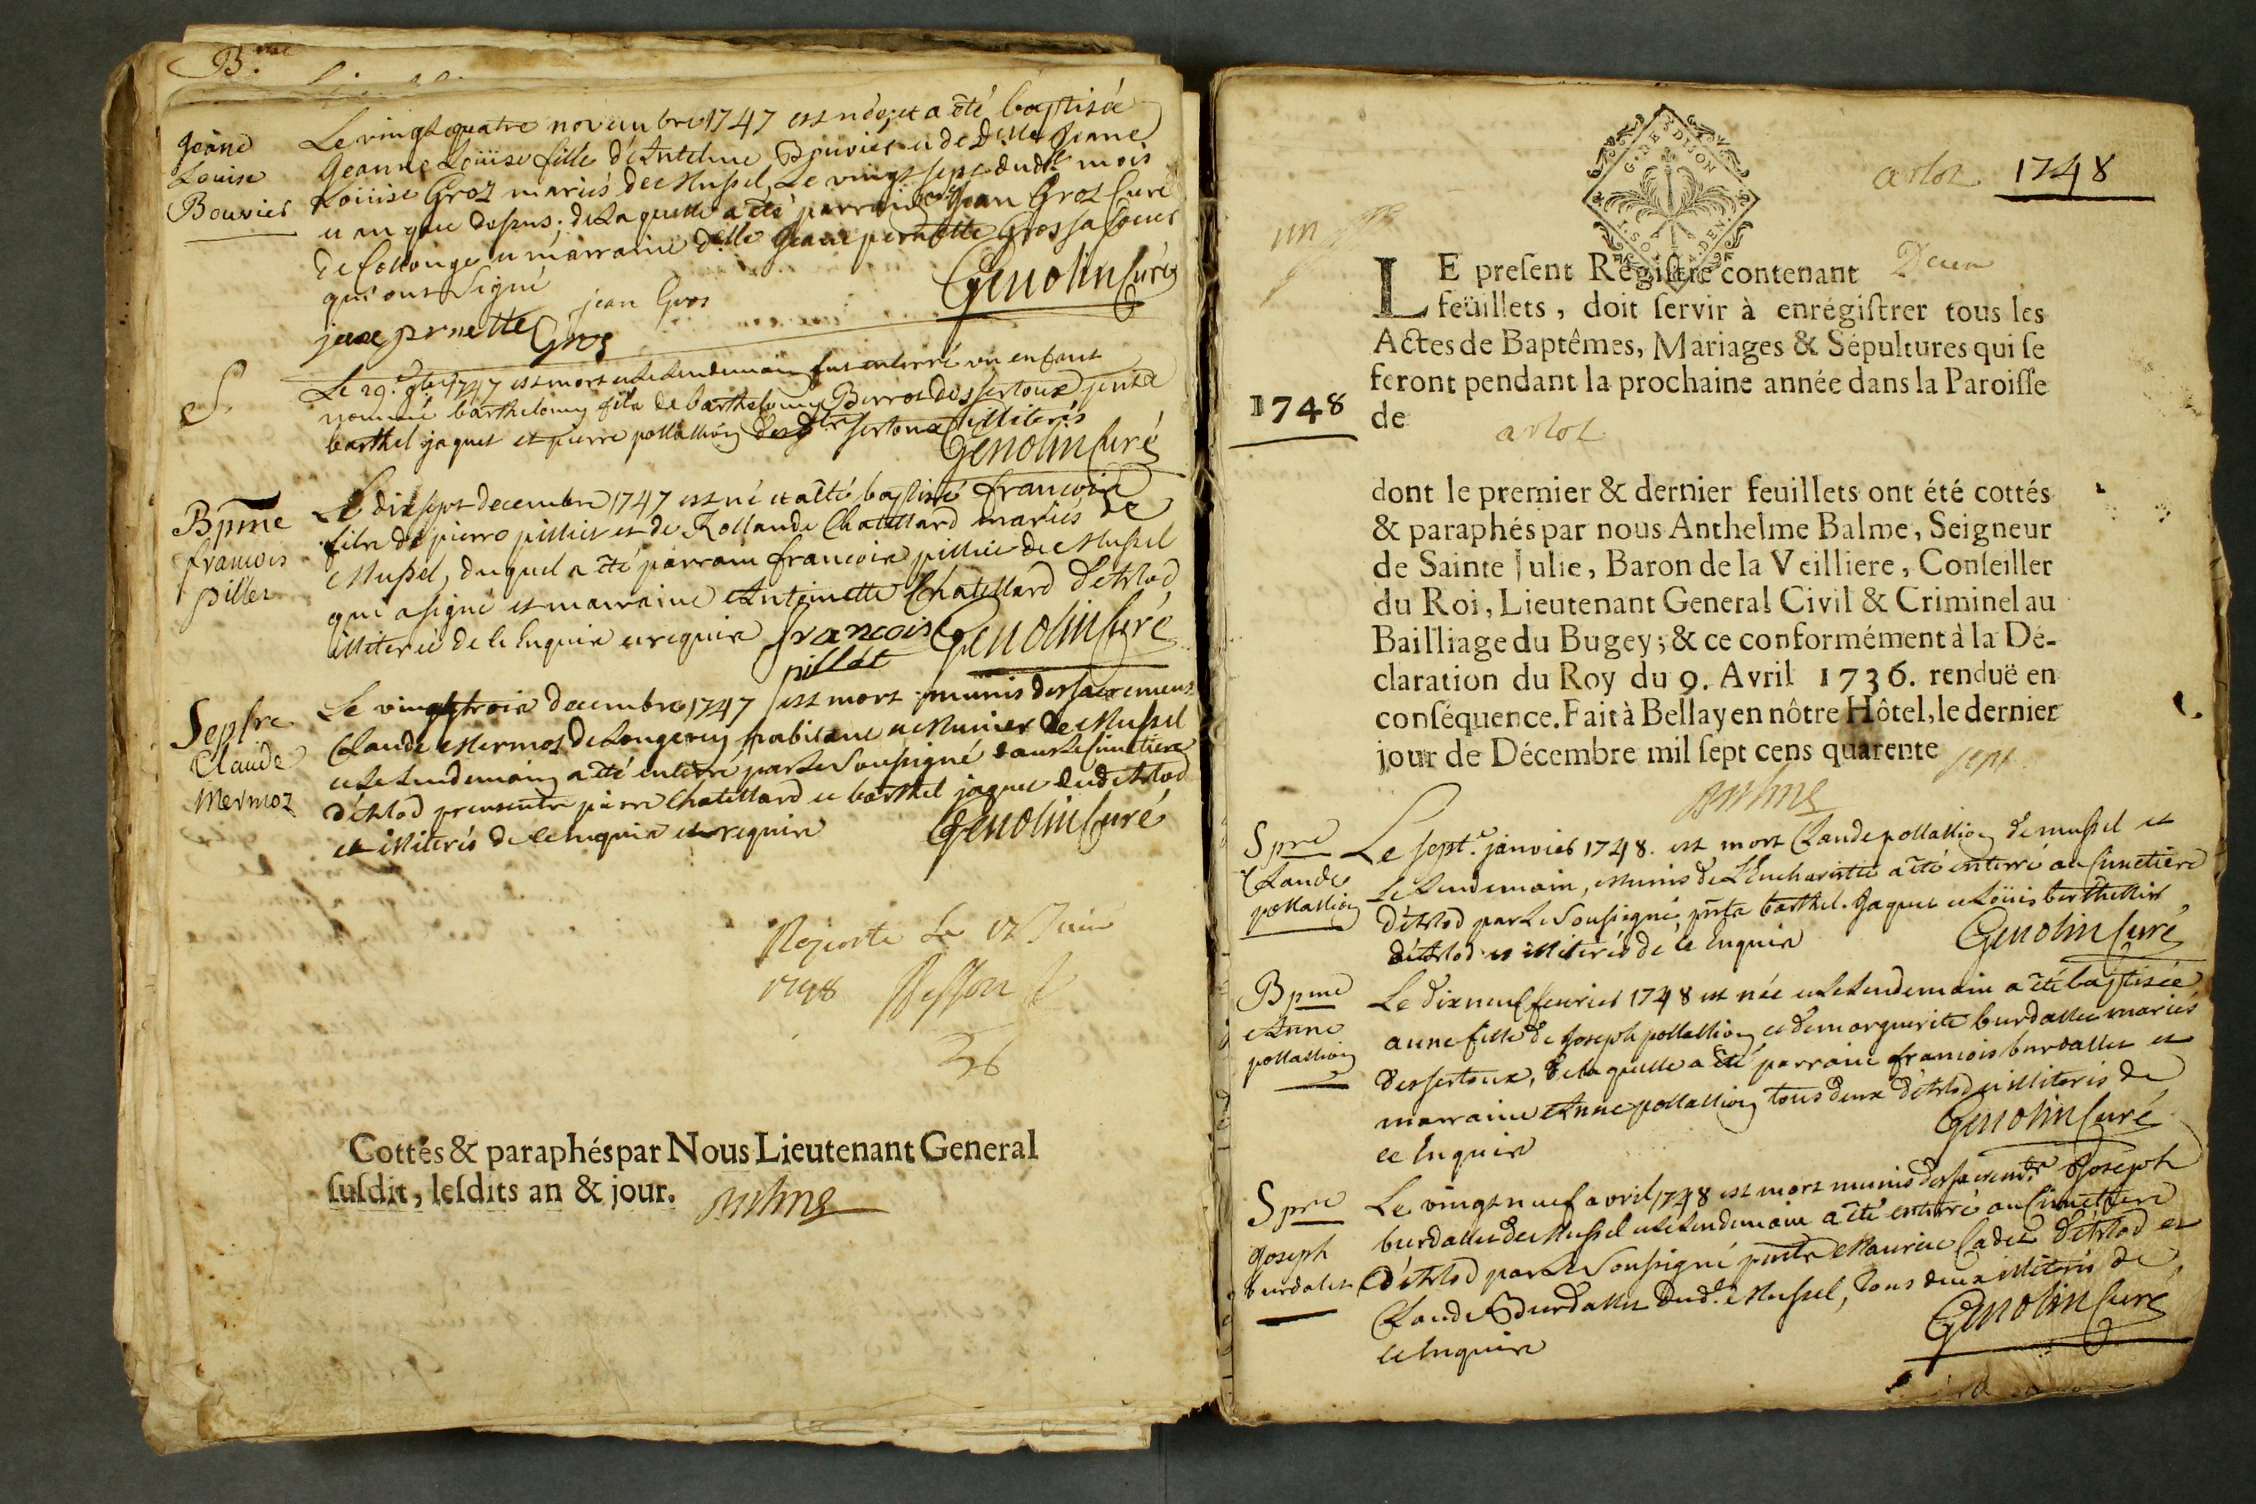 B.me
Jeane
Louise
Bouvier
Le vingt quatre novembre 1747 est née, et a été baptisée
Jeanne Loüise fille d'Antelme Bouvier et de D.lle Jeane
Loüise Groz mariés de Mussel, Le vingt sept dud.t mois
et an que dessus; de Laquelle a été parrain Jean Groz Curé
de Collonge et marraine d.lle Jeane pernette Gros sa soeur
qui ont Signé
jean Gros
Genolin Curé
jane prnette Gros
S.
Le 29.e 9bre 1747 est mort et Le Lendemain fut enterré un enfant
nommé barthelemy fils de barthelemy Berrod des sertoux pnts
barthel jaques et pierre pollallion desd. sertoux illiterés
Genolin Curé
Bpme
francois
pillet
Le dix sept decembre 1747 est né et a été baptisé francois
fils de pierre pillet et de Rollande Chatellard mariés de
Mussel, duquel a été parrain francois pillet de Mussel
qui a signé et marraine Antoinette Chatellard d'Arlod
illiterée de ce Enquise et requise francois Genolin Curé
pillet
Sepl.re
Claude
Mermoz
Le vingt trois decembre 1747 est mort munis des sacremens
Claude Mermoz de Longeray habitant et Munier de Mussel
et Le Lendemain a été enterré par Le Soussigné dans Le Cimetiere
d'Arlod presents pierre Chatellard et barthel jaques dud. Arlod
et illiterés de ce enquis et requis Genolin Curé
Raporté Le 17 Juin
1748
Cottés & paraphés par Nous Lieutenant General
susdit, lesdits an & jour. Balme
arloz 1748
G. DE DIJON
un
LE present Registre contenant Deux
feüillets, doit servir à enrégistrer tous les
Actes de Baptêmes, Mariages & Sépultures qui se
feront pendant la prochaine année dans la Paroisse
1748
de arloz
dont le premier & dernier feuillets ont été cottés
& paraphés par nous Anthelme Balme, Seigneur
de Sainte Julie, Baron de la Veilliere, Conseiller
du Roi, Lieutenant General Civil & Criminel au
Bailliage du Bugey; & ce conformément à la Dé-
claration du Roy du 9. Avril 1736. renduë en
conséquence. Fait à Bellay en nôtre Hôtel, le dernier
jour de Décembre mil sept cens quarente sept
Balme
Spre
Claude
pollallion
Le sept.e janvier 1748. est mort Claude pollallion de mussel et
Le Lendemain, munis de L'Eucharistie a été enterré au Cimetiere
d'Arlod par Le Soussigné pnts barthel. Jaques et Loüis berthellier
d'Arlod et illiterés de ce Enquis Genolin Curé
Bpme
Anne
pollallion
Le dix neuf fevrier 1748 est née et Le Lendemain a été baptisée
anne fille de Joseph pollallion et de marguerite burdallet mariés
des sertoux, de laquelle a été parrain francois burdallet et
marraine Anne pollallion tous deux d'Arlod et illiterés de
ce Enquis Genolin Curé
Spre
Joseph
burdalet
Le vingt neuf avril 1748 est mort munis des sacrem.ts Joseph
burdallet de Mussel et Le Lendemain a été enterré au Cimetiere
d'Arlod par Le Soussigné pnts Maurice Cadet d'Arlod et
Claude Burdallet dud.t Mussel, tous deux illiterés de
ce Enquis Genolin Curé